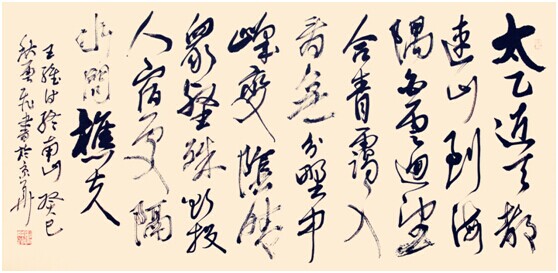 太乙近天都
連山到海
隅白雲迴望
合青靄入
看無分野中
峰變陰晴
眾壑殊欲投
人宿處隔
水問樵夫
王維詩終南山 癸巳
書於京華